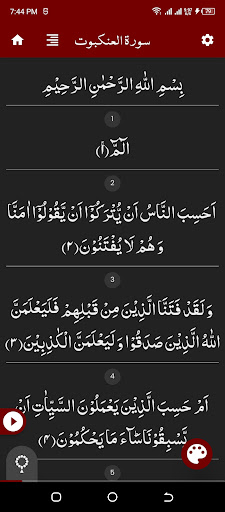 7:44 PM
79
سورة العنكبوت
بِسْمِ اللهِ الرَّحْمٰنِ الرَّحِيْمِ
1
الٓمّٓ ﴿۱﴾
2
اَحَسِبَ النَّاسُ اَنْ يُّتْرَكُوْٓا اَنْ يَّقُوْلُوْٓا اٰمَنَّا
وَهُمْ لَا يُفْتَنُوْنَ ﴿۲﴾
3
وَلَقَدْ فَتَنَّا الَّذِيْنَ مِنْ قَبْلِهِمْ فَلَيَعْلَمَنَّ
اللهُ الَّذِيْنَ صَدَقُوْا وَلَيَعْلَمَنَّ الْكٰذِبِيْنَ ﴿۳﴾
4
اَمْ حَسِبَ الَّذِيْنَ يَعْمَلُوْنَ السَّيِّاٰتِ اَنْ
يَّسْبِقُوْنَا سَآءَ مَا يَحْكُمُوْنَ ﴿۴﴾
5